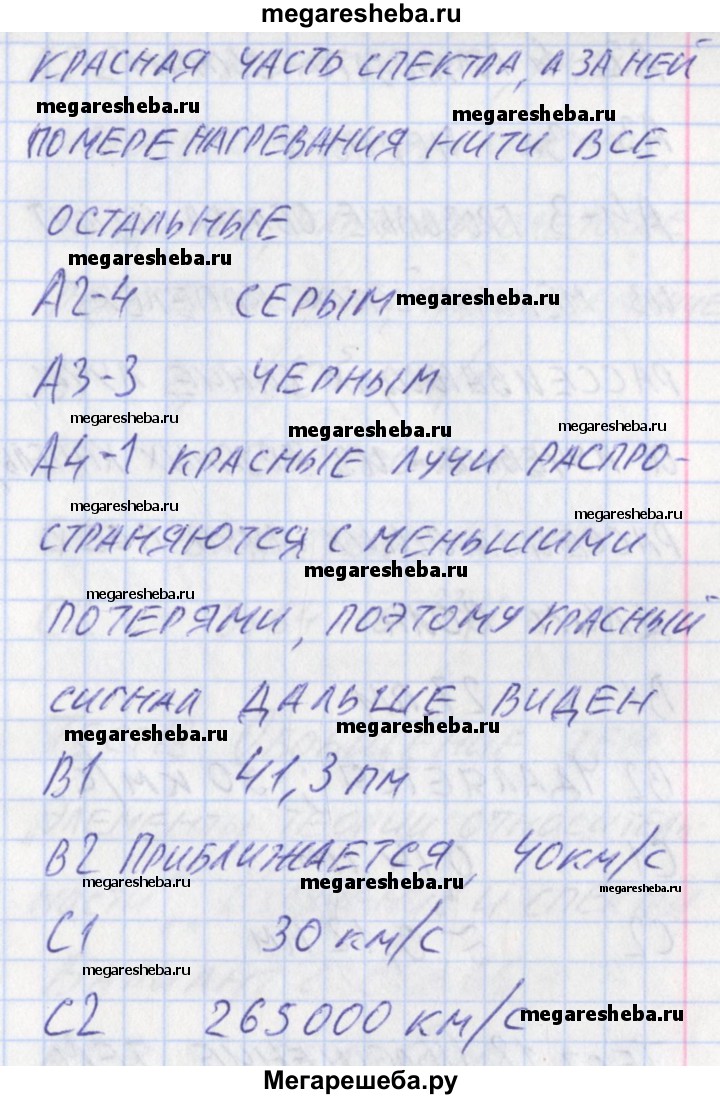 megaresheba.ru
КРАСНАЯ ЧАСТЬ СПЕКТРА, А ЗА НЕЙ
megaresheba.ru megaresheba.ru
ПО МЕРЕ НАГРЕВАНИЯ НИТИ ВСЕ
ОСТАЛЬНЫЕ
megaresheba.ru
А2-4 СЕРЫМ megaresheba.ru
А3-3 ЧЕРНЫМ
megaresheba.ru megaresheba.ru megaresheba.ru
А4-1 КРАСНЫЕ ЛУЧИ РАСПРО-
megaresheba.ru megaresheba.ru
СТРАНЯЮТСЯ С МЕНЬШИМИ
megaresheba.ru megaresheba.ru
ПОТЕРЯМИ, ПОЭТОМУ КРАСНЫЙ
СИГНАЛ ДАЛЬШЕ ВИДЕН
megaresheba.ru megaresheba.ru
В1 41,3 пм
В2 ПРИБЛИЖАЕТСЯ, 40 КМ/С
megaresheba.ru megaresheba.ru megaresheba.ru
С1 30 КМ/С
megaresheba.ru
С2 265000 КМ/С megaresheba.ru
Мегарешеба.ру